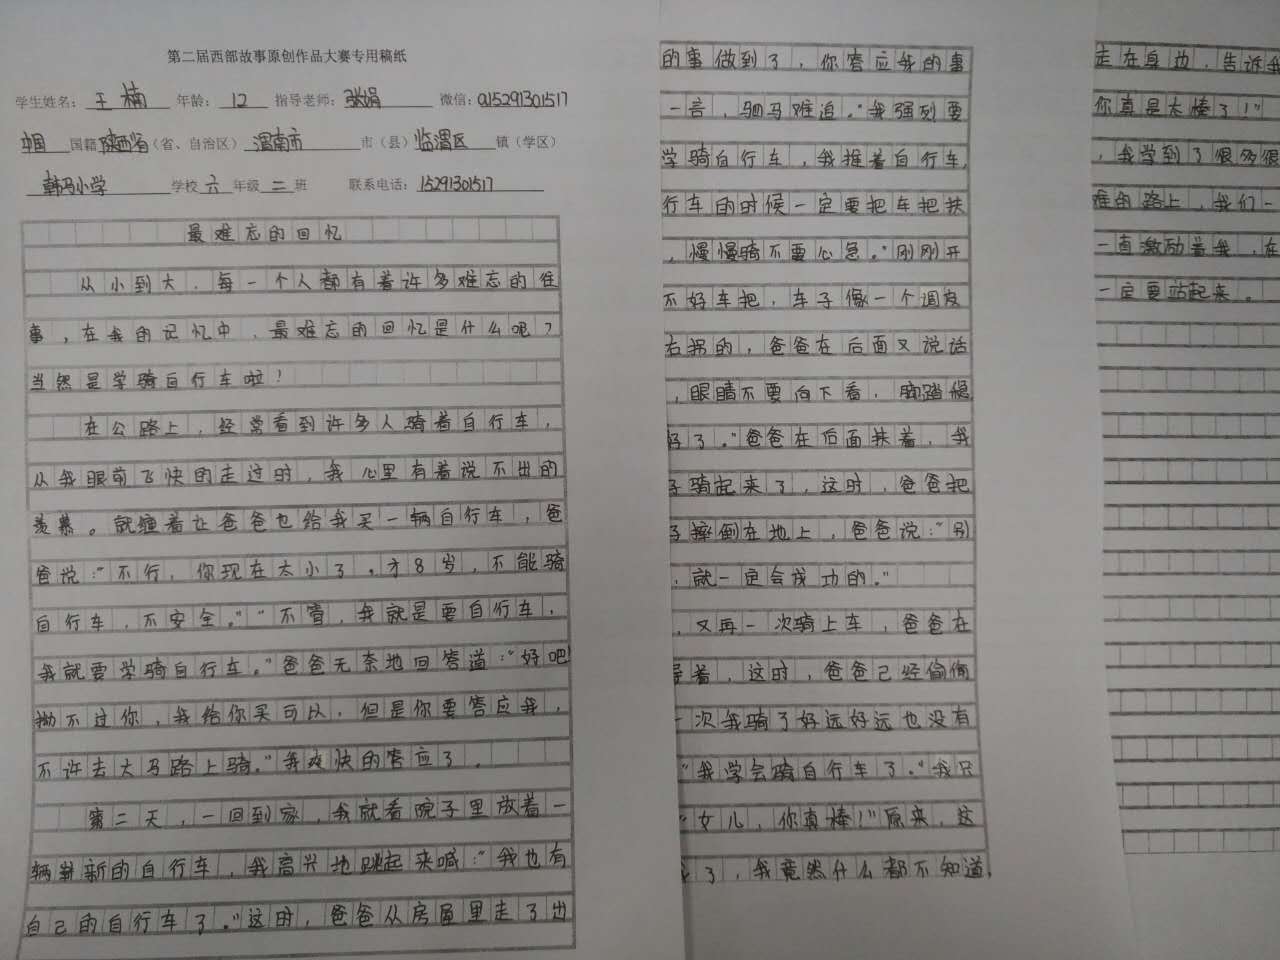 第二届西部故事原创作品大赛专用稿纸
学生姓名：王楠 年龄：12 指导老师：张娟 微信：a15291301517
中国 国籍 陕西省（省、自治区） 渭南市 市（县） 临渭区 镇（学区）
韩马小学 学校 六 年级 二 班 联系电话：15291301517
最难忘的回忆
从小到大，每一个人都有着许多难忘的往
事，在我的记忆中，最难忘的回忆是什么呢？
当然是学骑自行车啦！
在公路上，经常看到许多人骑着自行车，
从我眼前飞快的走过时，我心里有着说不出的
羡慕。就缠着让爸爸也给我买一辆自行车，爸
爸说：“不行，你现在太小了，才8岁，不能骑
自行车，不安全。”“不管，我就是要自行车，
我就要学骑自行车。”爸爸无奈地回答道：“好吧
拗不过你，我给你买可以，但是你要答应我，
不许去大马路上骑。”我爽快的答应了。
第二天，一回到家，我就看院子里放着一
辆崭新的自行车，我高兴地跳起来喊：“我也有
自己的自行车了。”这时，爸爸从房屋里走了出
的事做到了，你答应我的事
一言，驷马难追。”我强烈要
学骑自行车，我推着自行车，
行车的时候一定要把车把扶
，慢慢骑不要心急。”刚刚开
不好车把，车子像一个调皮
右拐的，爸爸在后面又说话
，眼睛不要向下看，脚踏稳
好了。”爸爸在后面扶着，我
子骑起来了，这时，爸爸把
子摔倒在地上，爸爸说：“别
，就一定会成功的。”
，又再一次骑上车，爸爸在
着，这时，爸爸已经偷偷
一次我骑了好远好远也没有
“我学会骑自行车了。”我只
“女儿，你真棒！”原来，这
了，我竟然什么都不知道，
走在身边，告诉我
你真是太棒了！”
，我学到了很多很
难的路上，我们一
一直激励着我，在
一定要站起来。